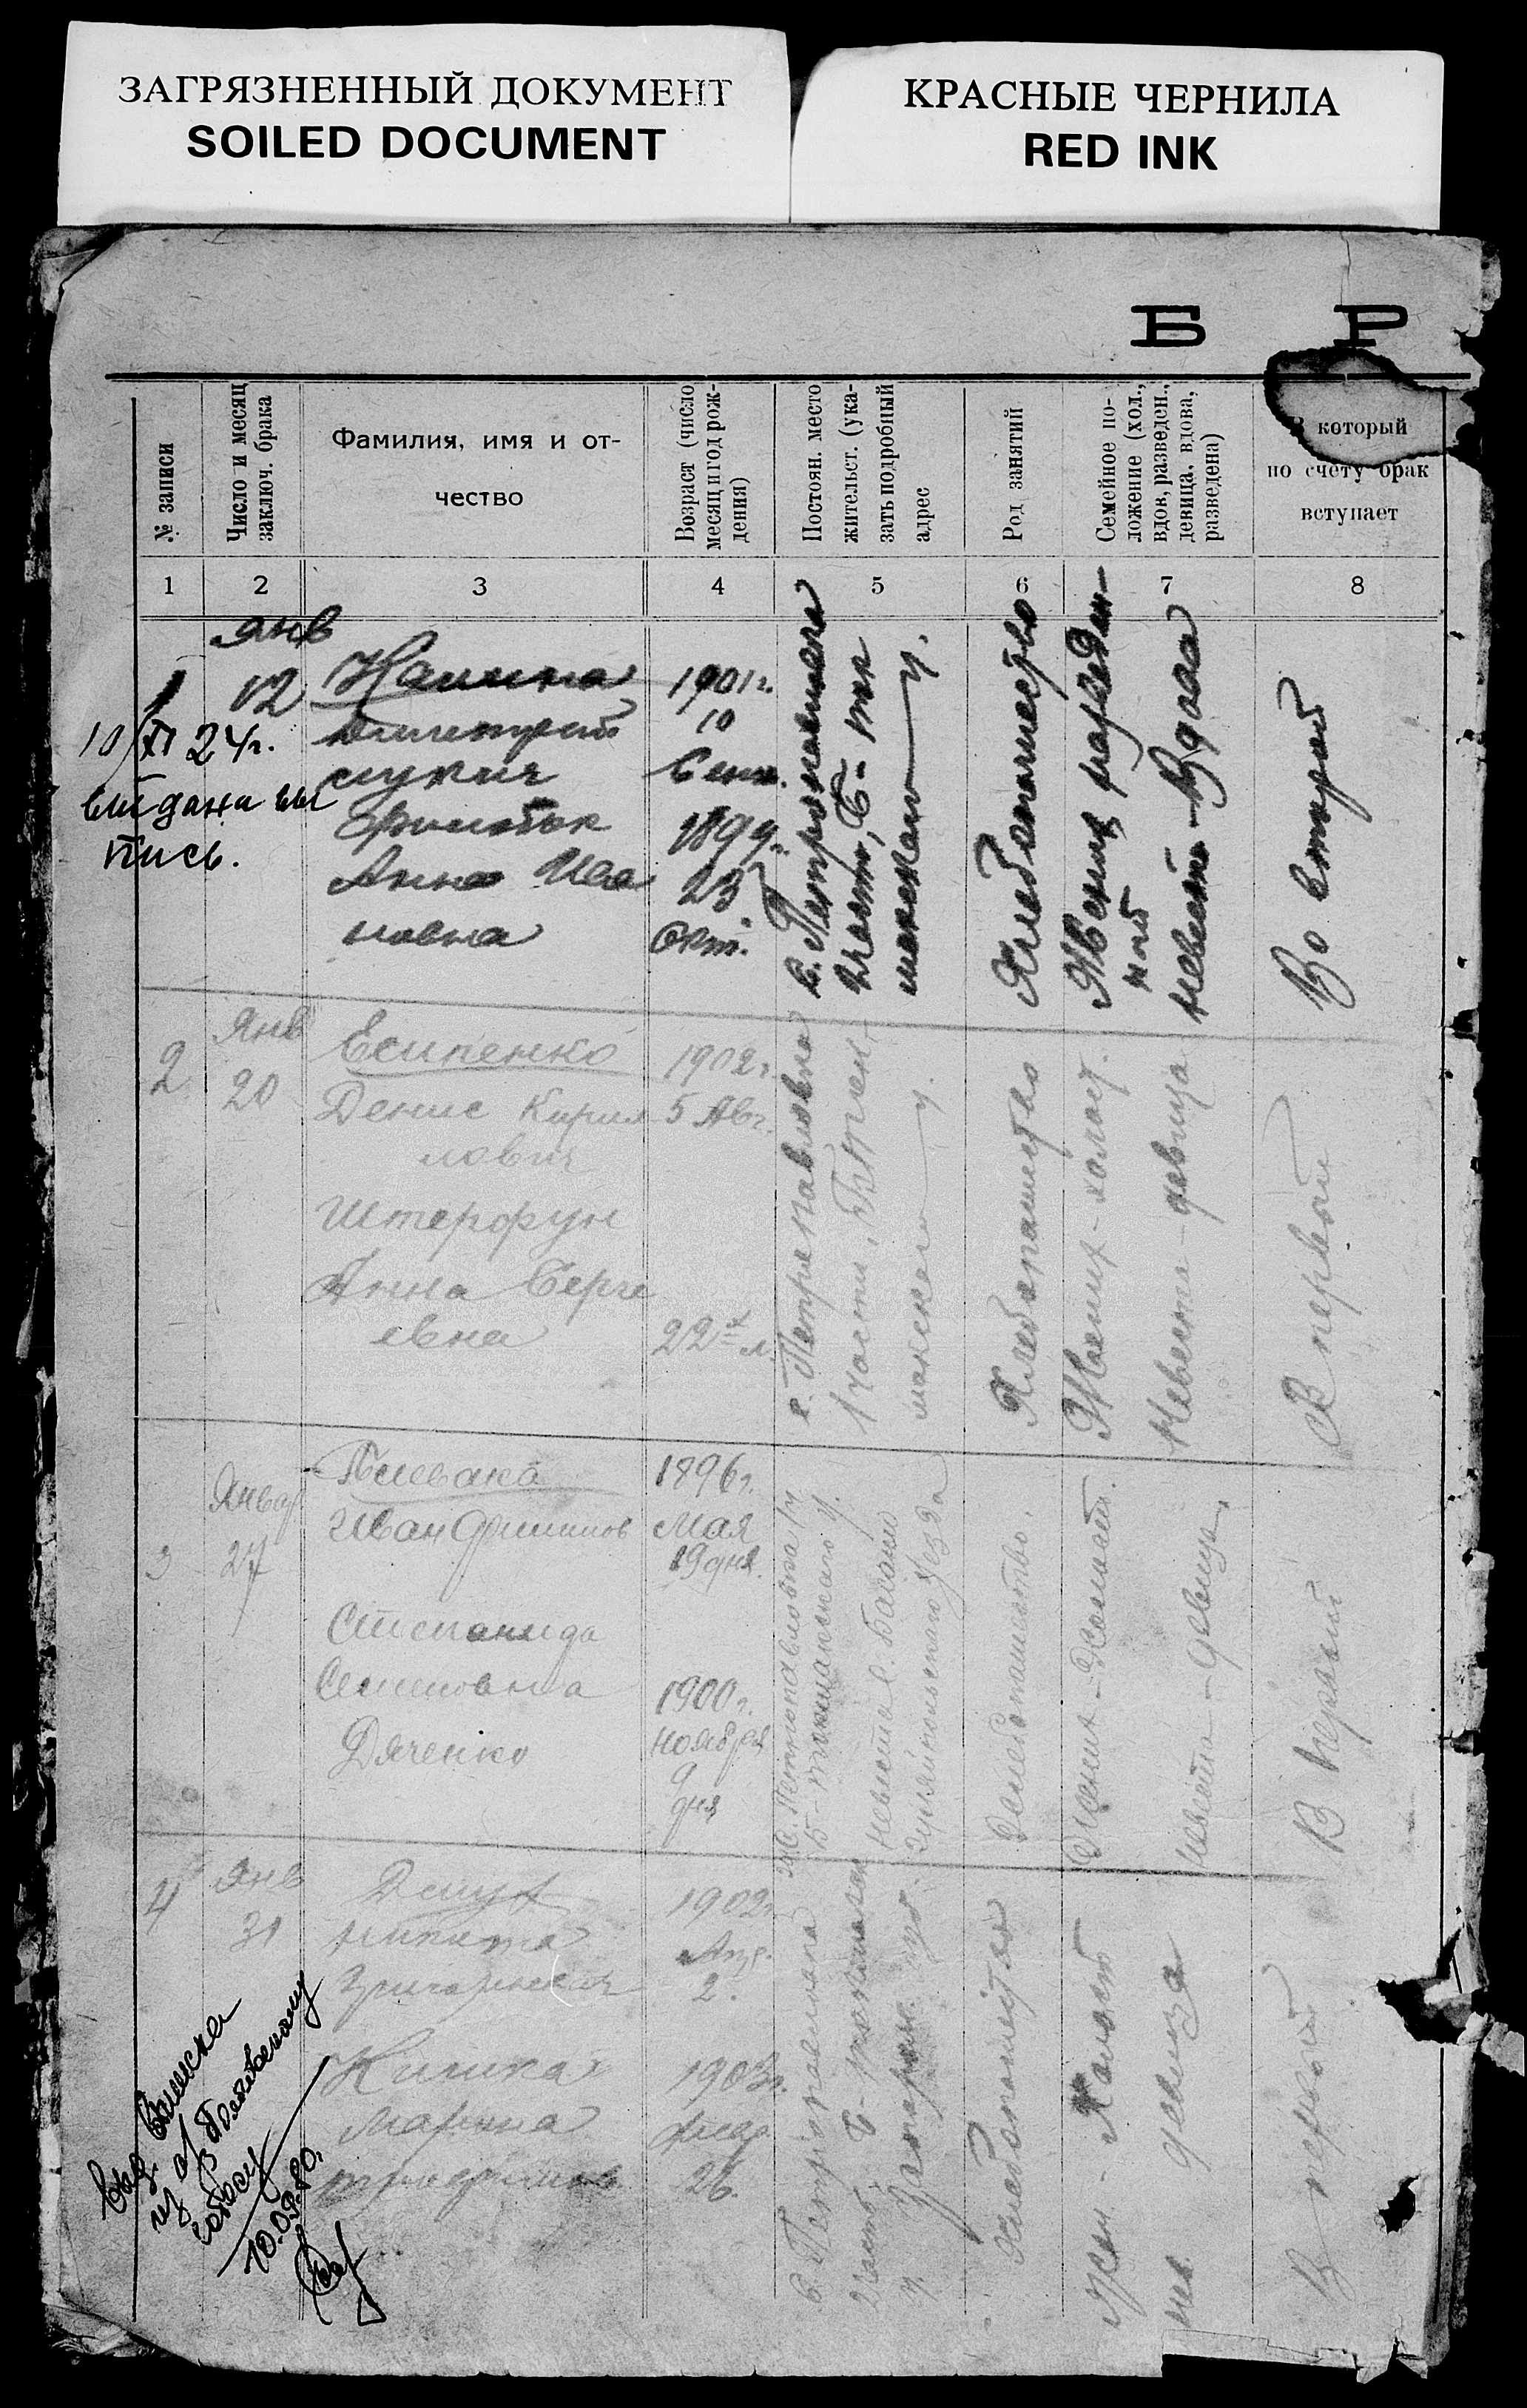 ЗАГРЯЗНЕННЫЙ ДОКУМЕНТ
SOILED DOCUMENT
КРАСНЫЕ ЧЕРНИЛА
RED INK
Б Р
№ записи
Число и месяц
заключ. брака
Фамилия, имя и от-
чество
Возраст (число
месяц и год рож-
дения)
Постоян. место
жительст. (ука-
зать подробный
адрес
Род занятий
Семейное по-
ложение (хол.,
вдов, разведен.,
девица, вдова,
разведена)
который
по счету брак
вступает
1 2 3 4 5 6 7 8
1
Янв
12
10/XI 24г.
выдана вы
пись.
Дмитрий
Анна Ива
новна
1901г.
10
Сент.
1899г.
23
Окт.
с. Петропавловка
Хлебопашество
Жених разведен-
ный
невеста - вдова
Во второй
2
Янв
20
Есипенко
Денис Кирил
лович
Штерфун
Анна Серге
евна
1902г.
5 Авг.
22х л.
с. Петропавловка
1 части,
Хлебопашество
Жених - холост.
Невеста - девица
В первой
3
Январ
27
Иван
Степанида
Семеновна
Дяченко
1896г.
Мая
19 дня.
1900г.
ноября
9
дня
с. Петропавловка
Б-Токмакского у.
невеста с.
Гуляйпольского уезда
Хлебопашество.
Жених - Холост.
Невеста - девица.
В первый
4
Янв
31
Никита
Григорьевич
Марина
1902г.
Апр.
2.
1903г.
26.
с. Петропавловка
2 часть, Б-Токмакск
у. Запорож. губ.
Хлебопашество
Жен. - Холост
нев. девица
В первый
Выд. выписка
из а/з
10.09.80.